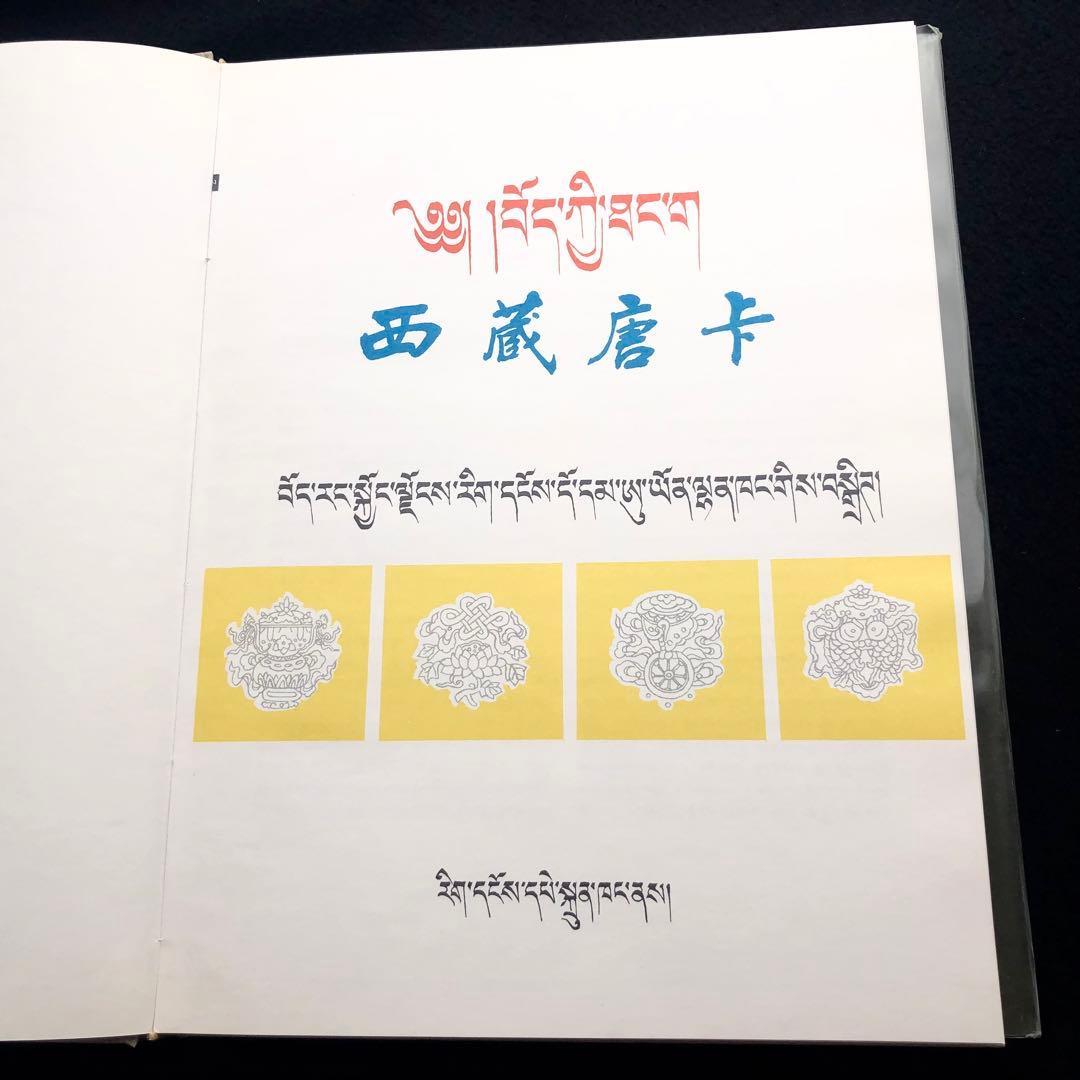 ༄༅། །བོད་ཀྱི་ཐང་ག
西藏唐卡
བོད་རང་སྐྱོང་ལྗོངས་རིག་དངོས་དོ་དམ་ཨུ་ཡོན་ལྷན་ཁང་གིས་བསྒྲིག
རིག་དངོས་དཔེ་སྐྲུན་ཁང་ནས།